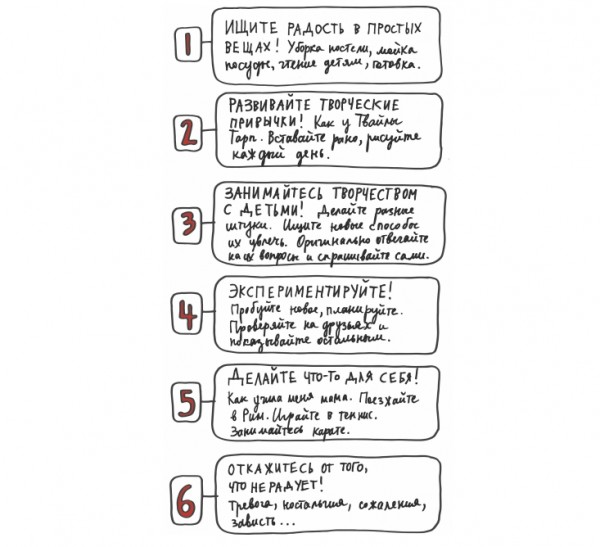 1
ИЩИТЕ РАДОСТЬ В ПРОСТЫХ
ВЕЩАХ! Уборка постели, мойка
посуды, чтение детям, готовка.
2
РАЗВИВАЙТЕ ТВОРЧЕСКИЕ
ПРИВЫЧКИ! Как у Твайлы
Тарп. Вставайте рано, рисуйте
каждый день.
3
ЗАНИМАЙТЕСЬ ТВОРЧЕСТВОМ
С ДЕТЬМИ! Делайте разные
штуки. Ищите новые способы
их увлечь. Оригинально отвечайте
на их вопросы и спрашивайте сами.
4
ЭКСПЕРИМЕНТИРУЙТЕ!
Пробуйте новое, планируйте.
Проверяйте на друзьях и
показывайте остальным.
5
ДЕЛАЙТЕ ЧТО-ТО ДЛЯ СЕБЯ!
Как учила меня мама. Поезжайте
в Рим. Играйте в теннис.
Занимайтесь карате.
6
ОТКАЖИТЕСЬ ОТ ТОГО,
ЧТО НЕ РАДУЕТ!
Тревога, ностальгия, сожаления,
зависть...